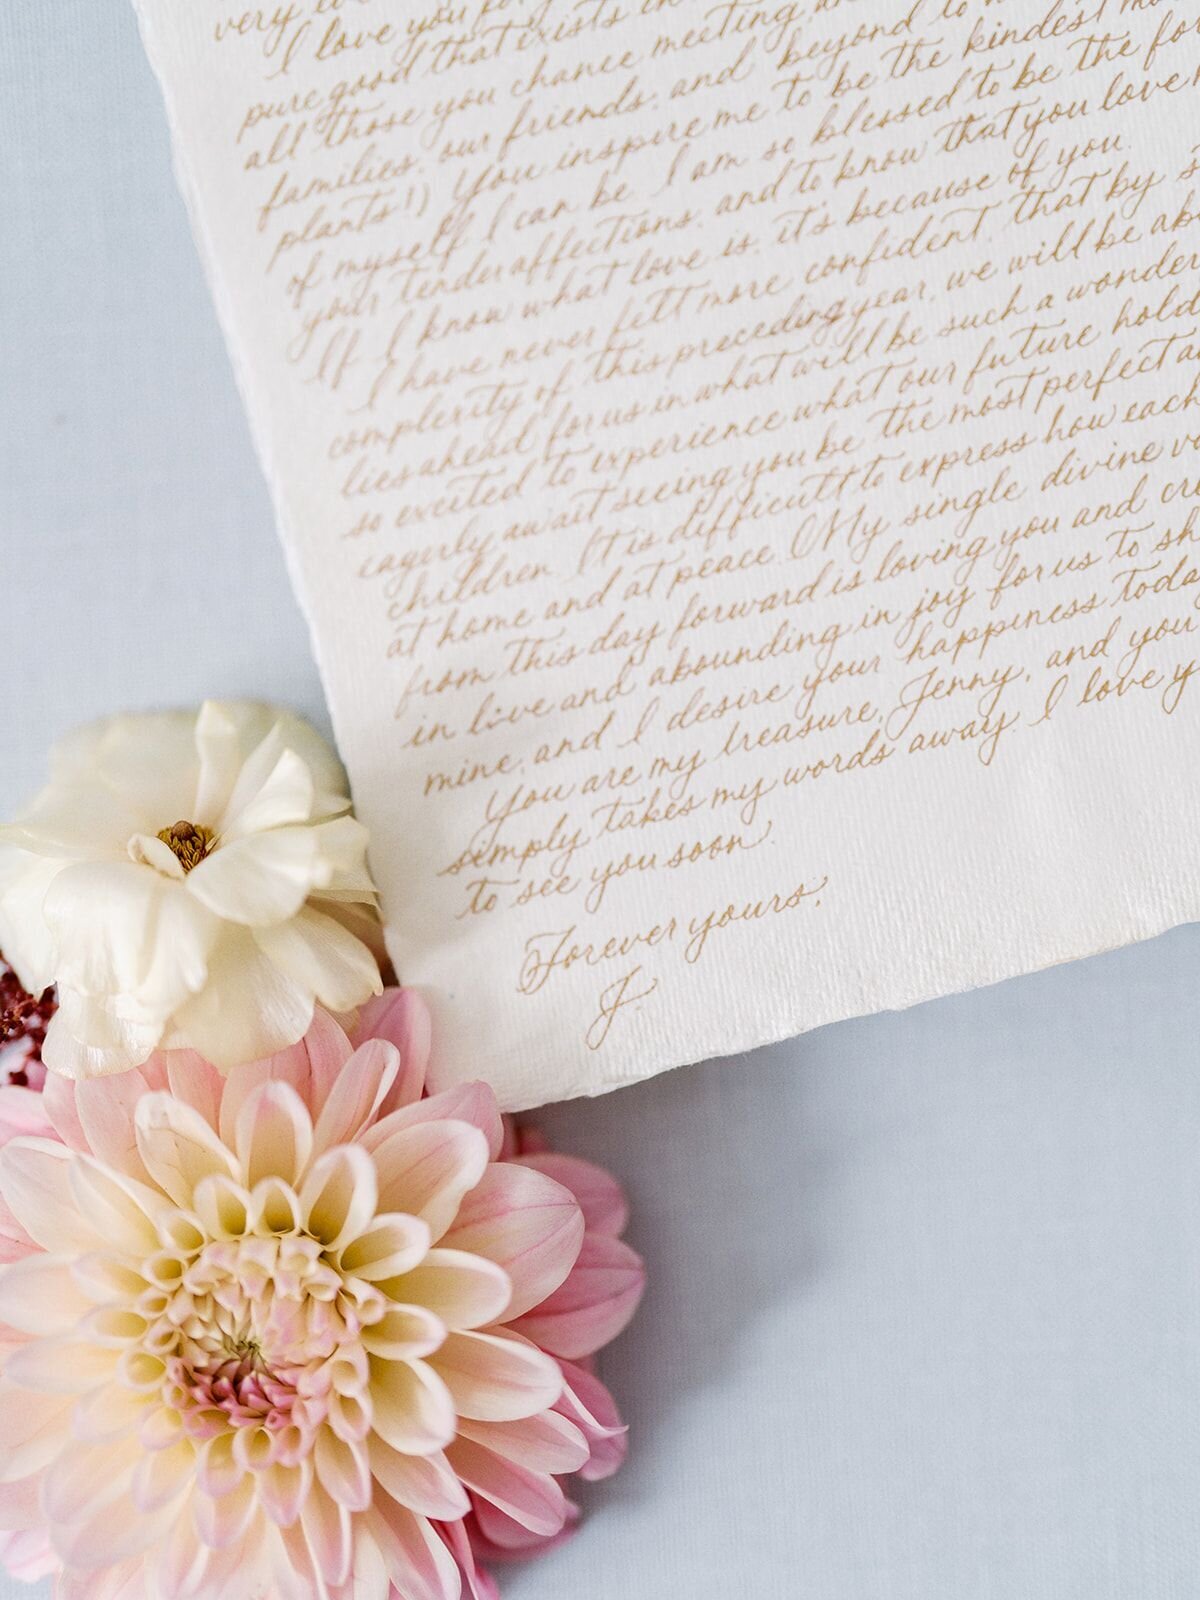 very
I love you for
pure good that exists in
all those you chance meeting, an
families, our friends, and beyond to
plants!) You inspire me to be the kindest mo
of myself I can be. I am so blessed to be the fo
your tender affections, and to know that you love
If I know what love is, it's because of you.
I have never felt more confident, that by
complexity of this preceding year, we will be ab
lies ahead for us in what will be such a wonder
so excited to experience what our future hold
eagerly await seeing you be the most perfect
children. It is difficult to express how each
at home and at peace. My single divine vo
from this day forward is loving you and cre
in love and abounding in joy for us to sh
mine, and I desire your happiness toda
You are my treasure, Jenny, and you
simply takes my words away. I love y
to see you soon.
Forever yours,
J.